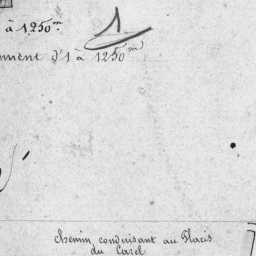 à 1250m.
1
nement d'1 à 1250m
Chemin conduisant au Glacis
du Carel